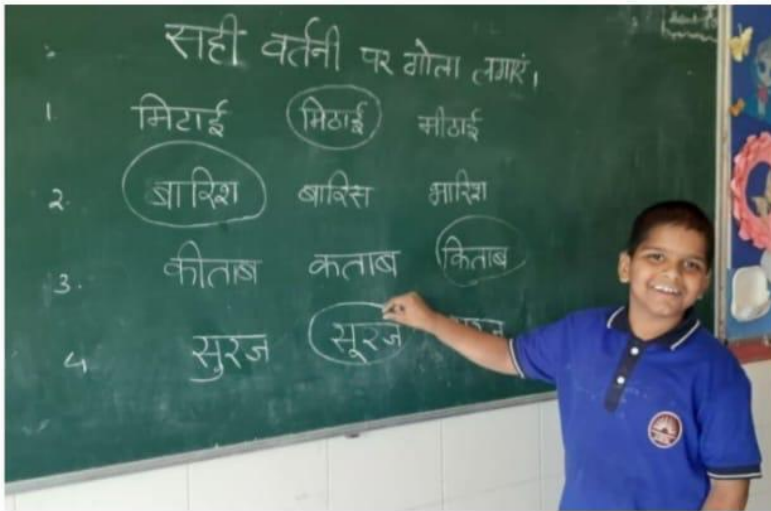 सही वर्तनी पर गोला लगाएं।
1. मिटाई मिठाई मीठाई
2. बारिश बारिस भारिश
3. कीताब कताब किताब
4 सुरज सूरज